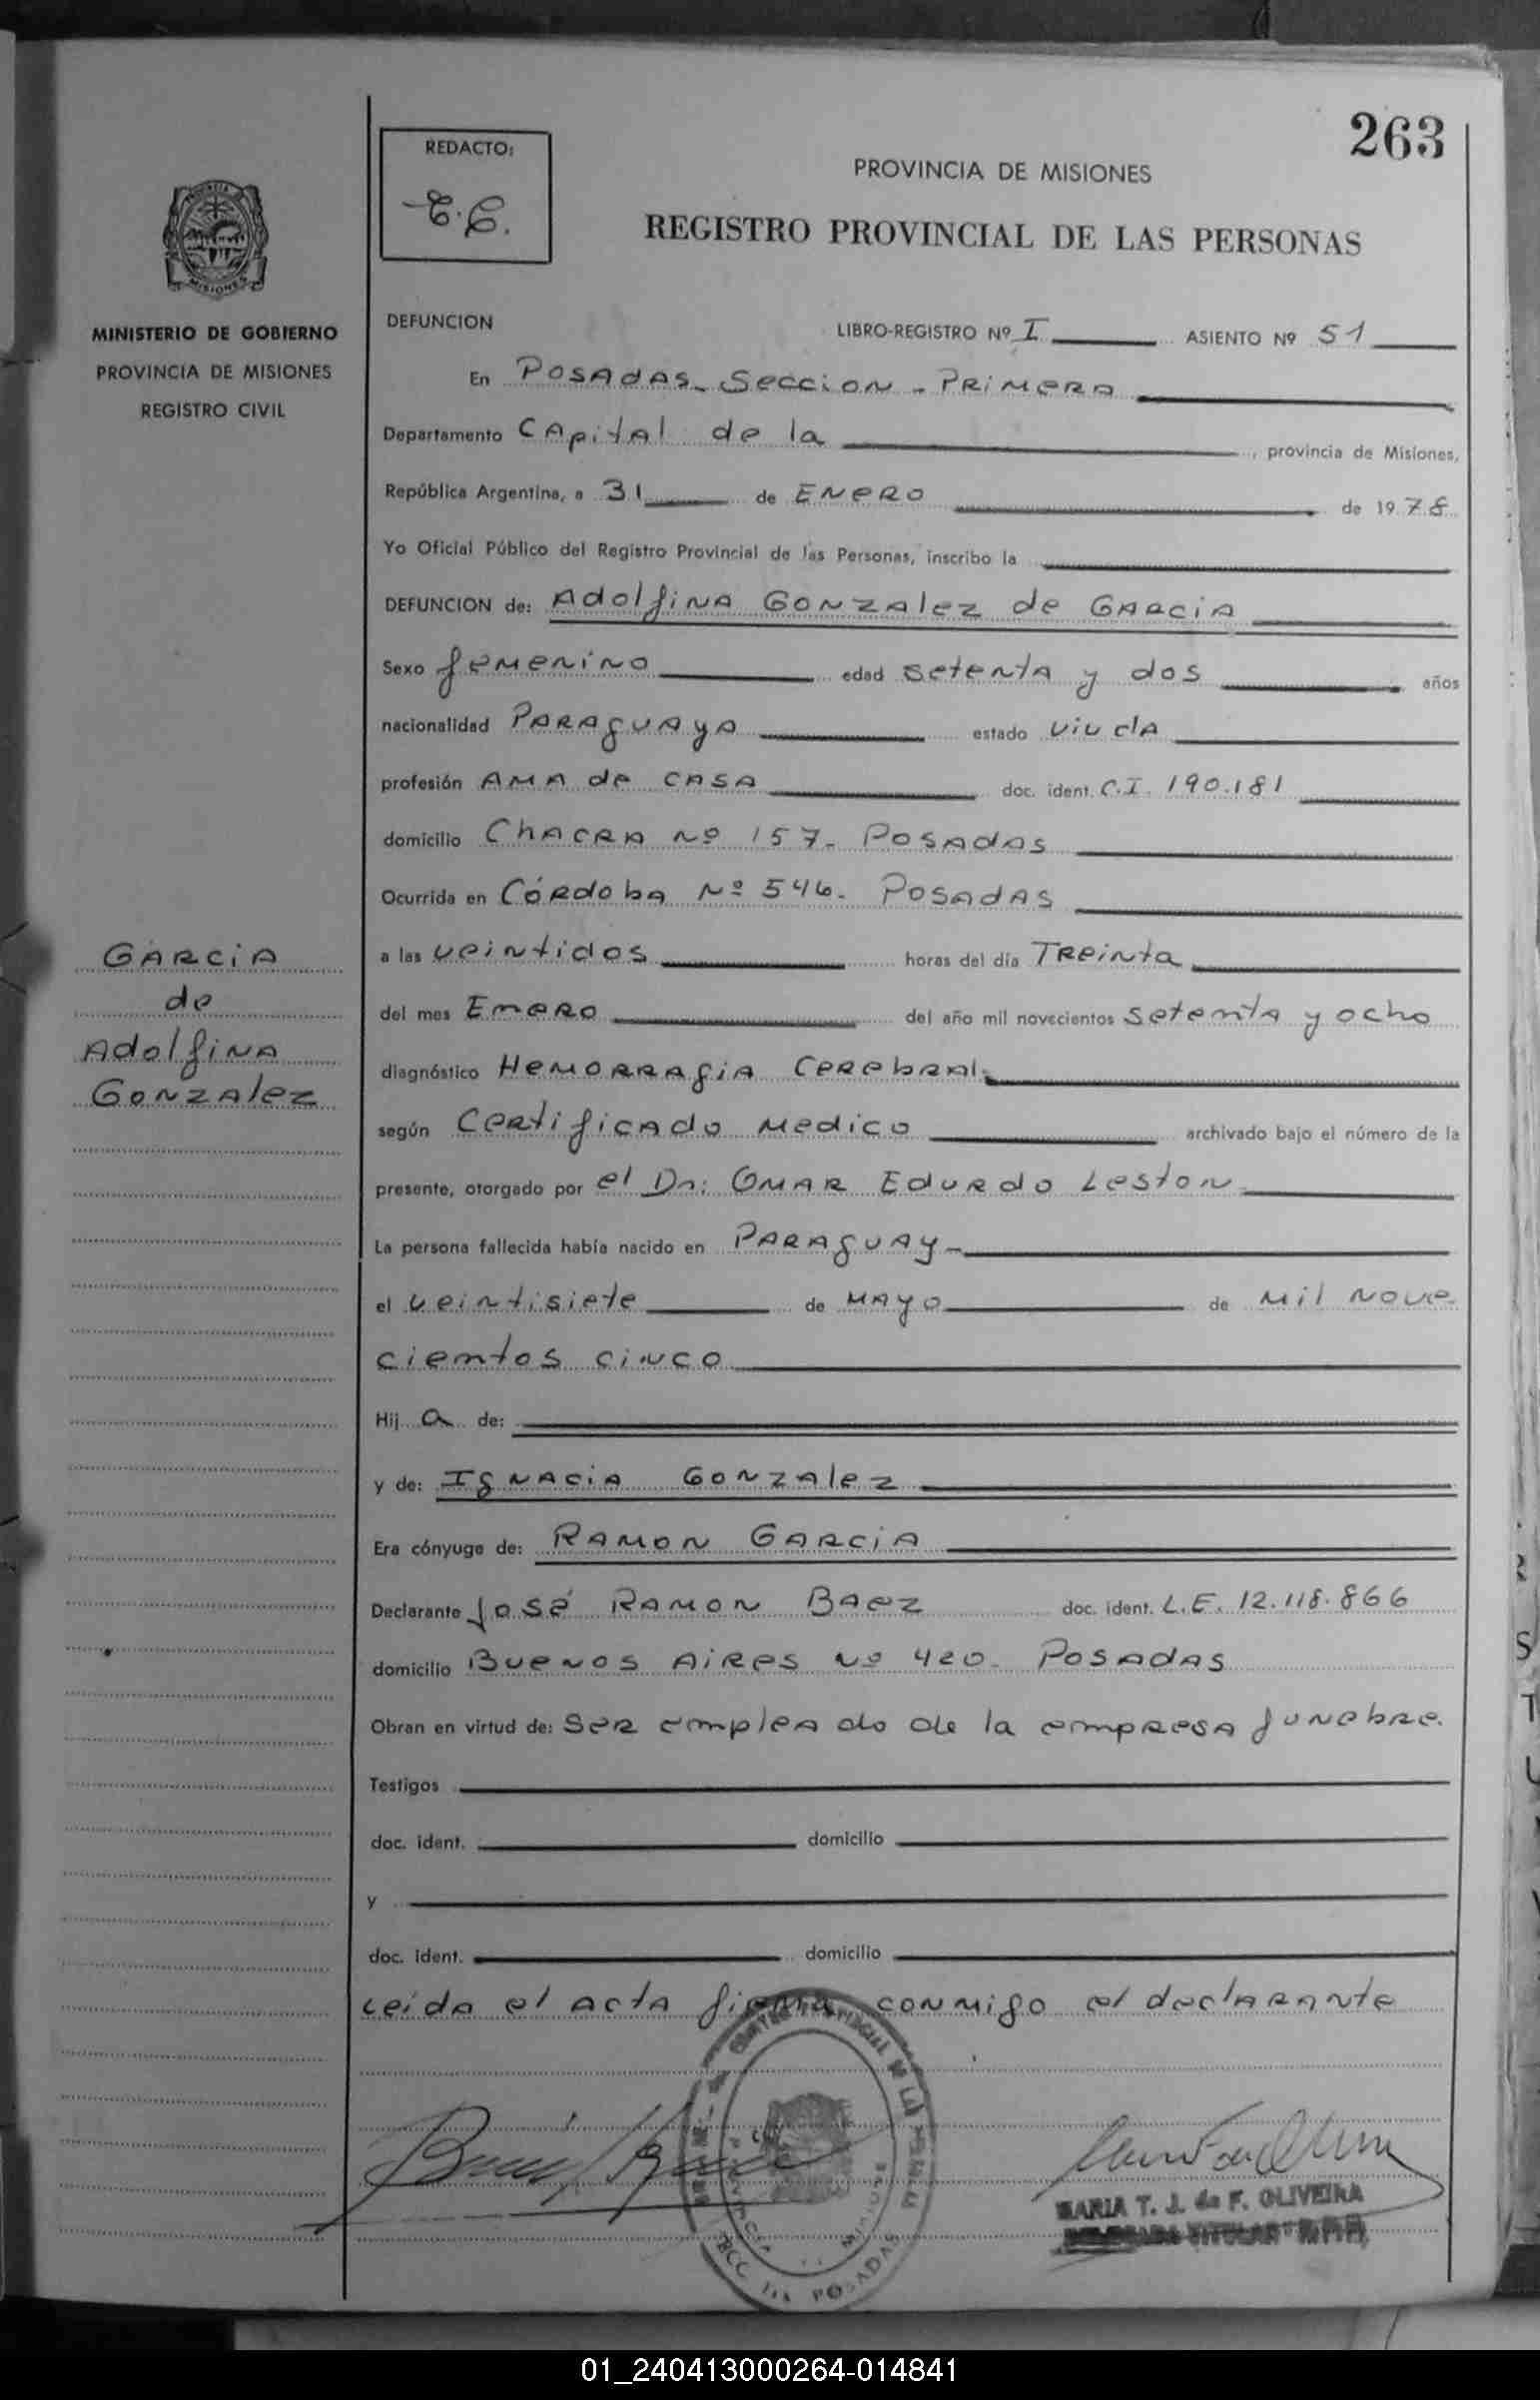 263
REDACTO:
PROVINCIA DE MISIONES
REGISTRO PROVINCIAL DE LAS PERSONAS
MISIONES
MINISTERIO DE GOBIERNO
PROVINCIA DE MISIONES
REGISTRO CIVIL
DEFUNCION LIBRO-REGISTRO Nº I ASIENTO Nº 51
En POSADAS - SECCION - PRIMERA
Departamento CApitAl de la , provincia de Misiones,
República Argentina, a 31 de ENERO de 1978
Yo Oficial Público del Registro Provincial de las Personas, inscribo la
DEFUNCION de: Adolfina Gonzalez de Garcia
Sexo femenino edad setenta y dos años
nacionalidad Paraguaya estado viuda
profesión Ama de casa doc. ident. C.I. 190.181
domicilio Chacra Nº 157. Posadas
Ocurrida en Córdoba Nº 546. Posadas
a las veintidos horas del día Treinta
del mes Enero del año mil novecientos setenta y ocho
diagnóstico Hemorragia Cerebral.
según Certificado Medico archivado bajo el número de la
presente, otorgado por el Dr: Omar Edurdo Leston
La persona fallecida había nacido en Paraguay
el veintisiete de Mayo de mil nove
cientos cinco
Hij a de:
y de: Ignacia Gonzalez
Era cónyuge de: Ramon Garcia
Declarante José Ramon Baez doc. ident. L.E. 12.118.866
domicilio Buenos Aires Nº 420. Posadas
Obran en virtud de: Ser empleado de la empresa funebre.
Testigos
doc. ident. domicilio
y
doc. ident. domicilio
Leida el acta firma conmigo el declarante
Garcia
de
Adolfina
Gonzalez
MARIA T. J. de F. OLIVEIRA
POSADAS
01_240413000264-014841